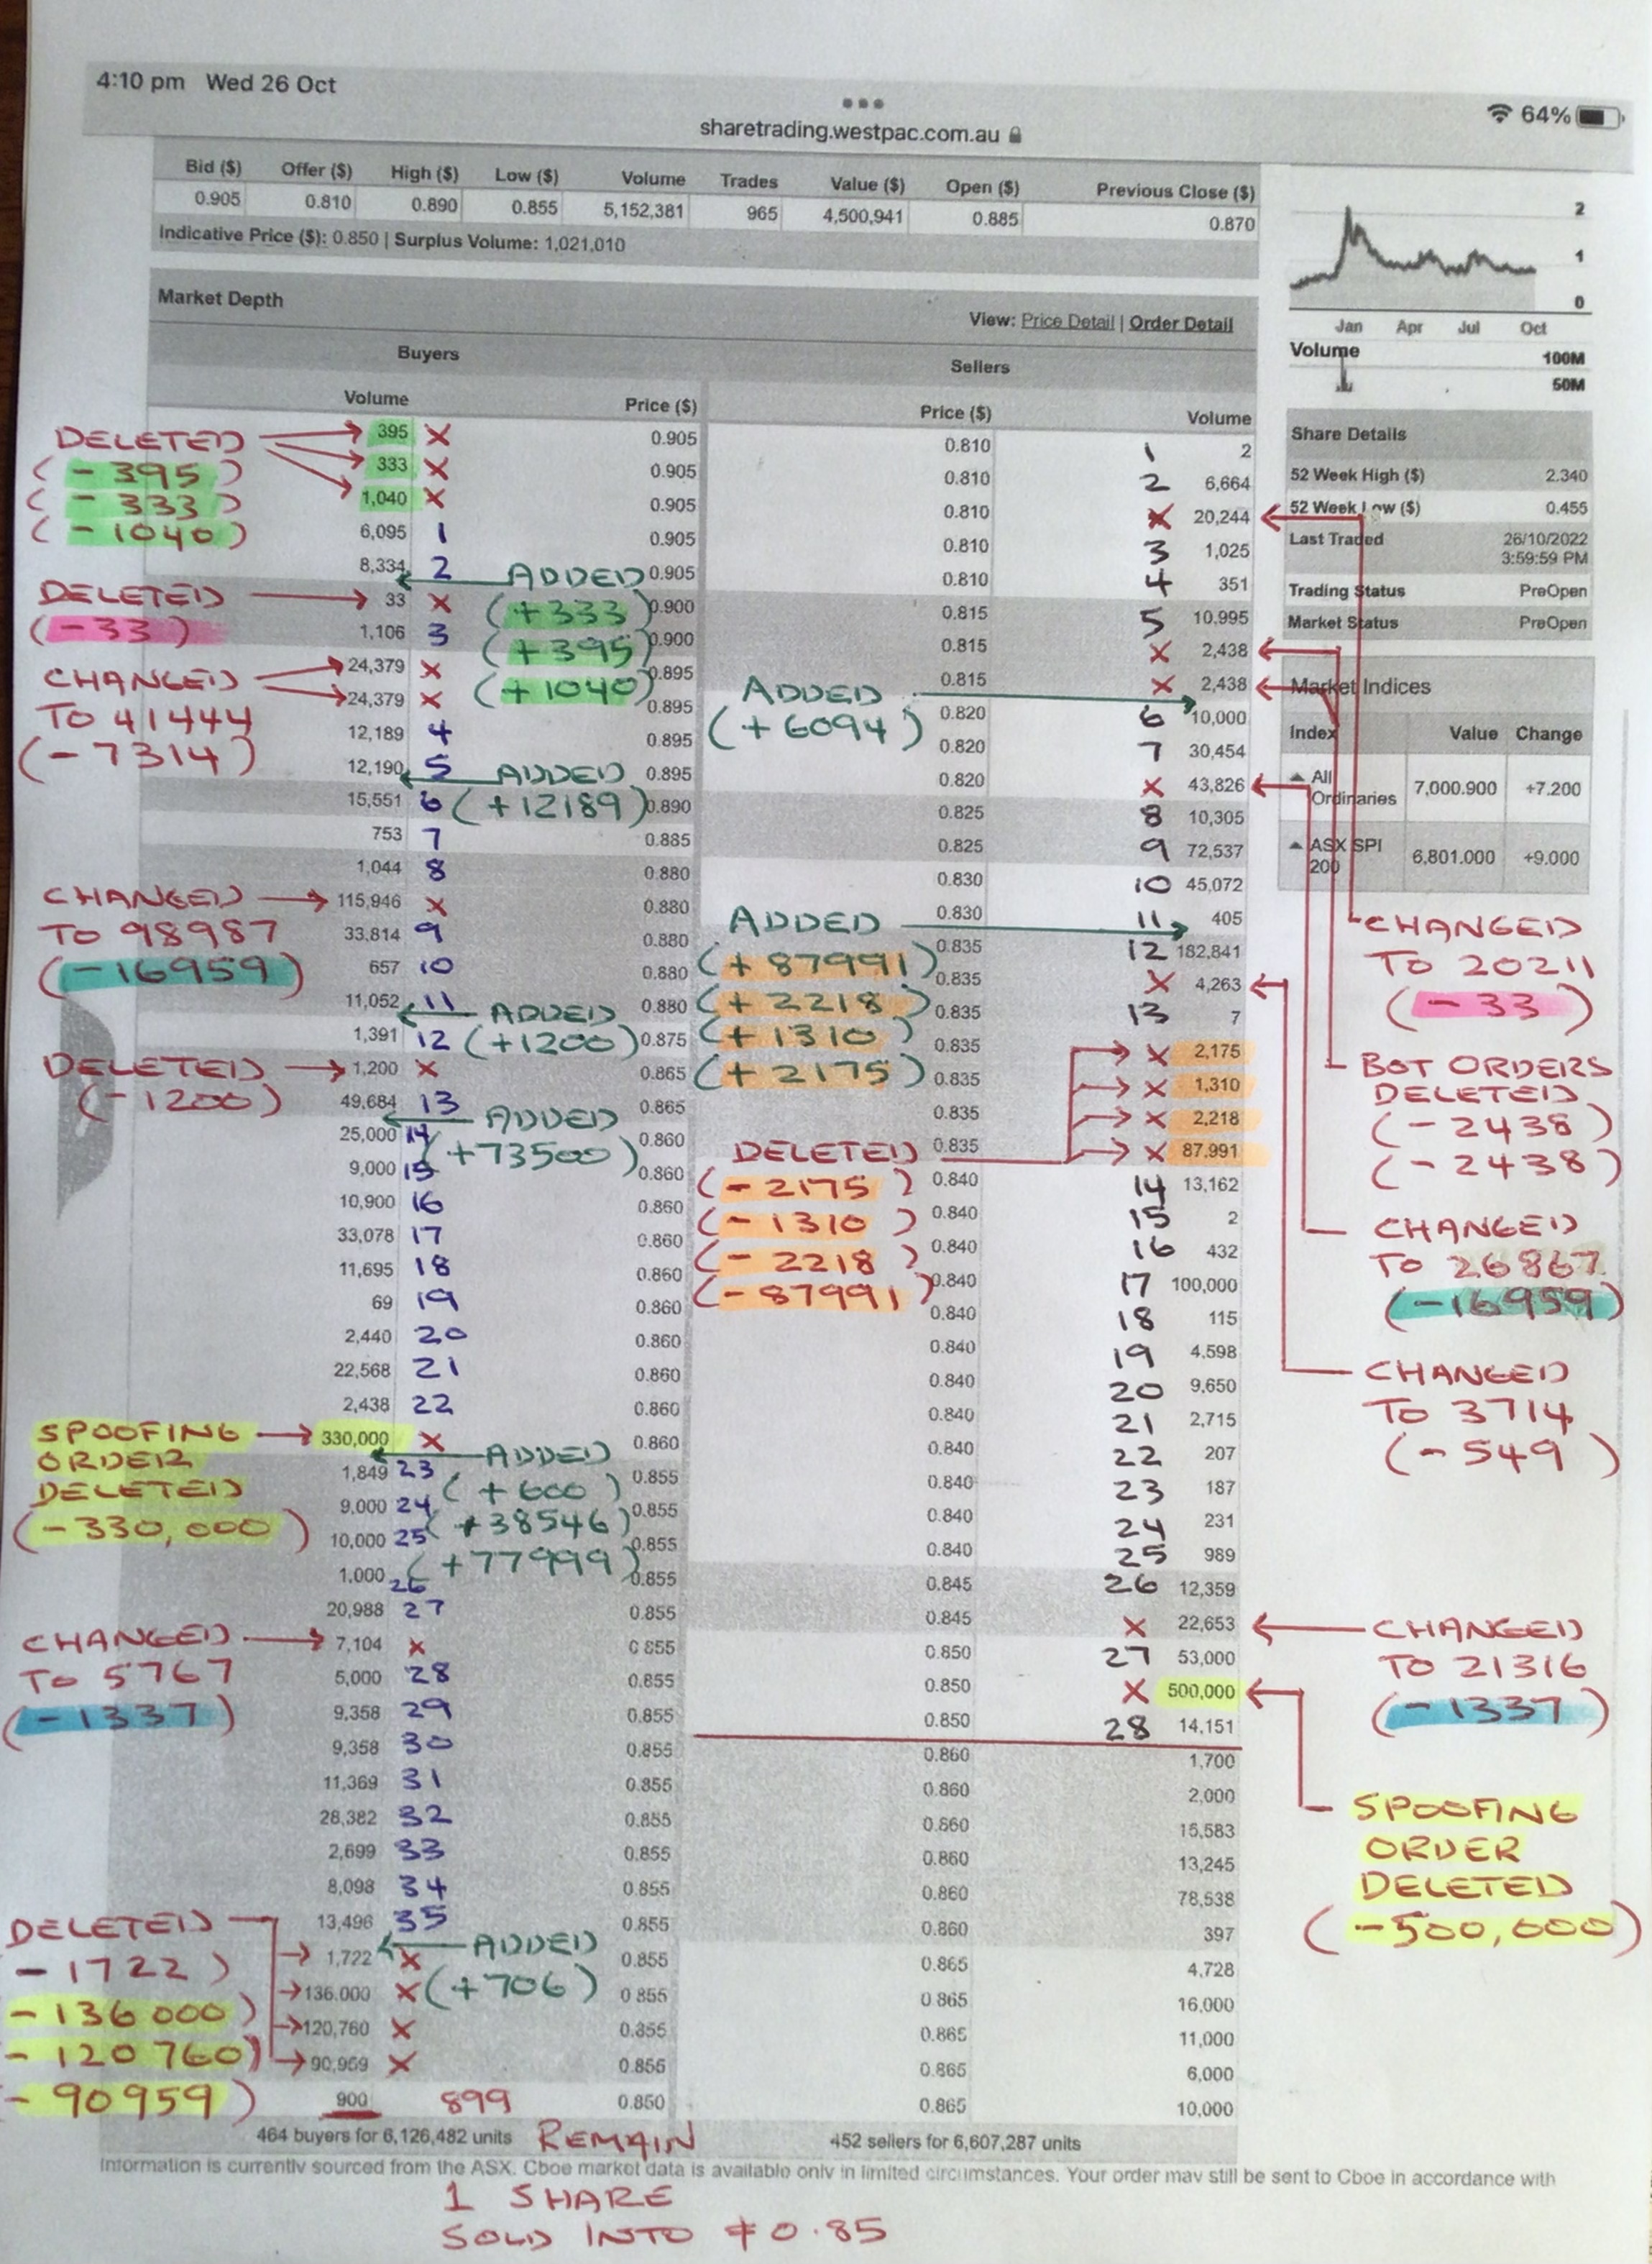 4:10 pm Wed 26 Oct
sharetrading.westpac.com.au
64%
Bid ($) Offer ($) High ($) Low ($) Volume Trades Value ($) Open ($) Previous Close ($)
0.905 0.810 0.890 0.855 5,152,381 965 4,500,941 0.885 0.870
Indicative Price ($): 0.850 | Surplus Volume: 1,021,010
Market Depth
View: Price Detail | Order Detail
Buyers Sellers
Volume Price ($) Price ($) Volume
395 X 0.905 0.810 1 2
333 X 0.905 0.810 2 6,664
1,040 X 0.905 0.810 X 20,244
6,095 1 0.905 0.810 3 1,025
8,334 2 0.905 0.810 4 351
33 X 0.900 0.815 5 10.995
1,106 3 0.900 0.815 X 2,438
24,379 X 0.895 0.815 X 2,438
24,379 X 0.895 0.820 6 10,000
12,189 4 0.895 0.820 7 30,454
12,190 5 0.895 0.820 X 43,826
15,551 6 0.890 0.825 8 10,305
753 7 0.885 0.825 9 72,537
1,044 8 0.880 0.830 10 45,072
115,946 X 0.880 0.830 11 405
33.814 9 0.880 0.835 12 182,841
657 10 0.880 0.835 X 4,263
11,052 11 0.880 0.835 13 7
1,391 12 0.875 0.835 X 2,175
1,200 X 0.865 0.835 X 1,310
49,684 13 0.865 0.835 X 2,218
25,000 14 0.860 0.835 X 87.991
9,000 15 0.860 0.840 14 13,162
10,900 16 0.860 0.840 15 2
33,078 17 0.860 0.840 16 432
11,695 18 0.860 0.840 17 100,000
69 19 0.860 0.840 18 115
2,440 20 0.860 0.840 19 4,598
22,568 21 0.860 0.840 20 9,650
2,438 22 0.860 0.840 21 2,715
330,000 X 0.860 0.840 22 207
1,849 23 0.855 0.840 23 187
9,000 24 0.855 0.840 24 231
10,000 25 0.855 0.840 25 989
1,000 26 0.855 0.845 26 12,359
20,988 27 0.855 0.845 X 22,653
7,104 X 0.855 0.850 27 53,000
5,000 28 0.855 0.850 X 500,000
9,358 29 0.855 0.850 28 14,151
9,358 30 0.855 0.860 1,700
11,369 31 0.855 0.860 2,000
28,382 32 0.855 0.860 15,583
2,699 33 0.855 0.860 13,245
8,098 34 0.855 0.860 78,538
13,496 35 0.855 0.860 397
1,722 X 0.855 0.865 4,728
136.000 X 0.855 0.865 16,000
120,760 X 0.855 0.865 11,000
90,959 X 0.855 0.865 6,000
900 899 0.850 0.865 10,000
464 buyers for 6,126,482 units REMAIN 452 sellers for 6,607,287 units
Information is currently sourced from the ASX. Cboe market data is available only in limited circumstances. Your order may still be sent to Cboe in accordance with
1 SHARE
SOLD INTO $0.85
DELETED
(-395)
(-333)
(-1040)
DELETED
(-33)
CHANGED
TO 41444
(-7314)
CHANGED
TO 98987
(-16959)
DELETED
(-1200)
SPOOFING
ORDER
DELETED
(-330,000)
CHANGED
TO 5767
(-1337)
DELETED
-1722)
-136000)
-120760)
-90959)
ADDED
(+333)
(+395)
(+1040)
ADDED
(+12189)
ADDED
(+1200)
ADDED
(+73500)
ADDED
(+600)
(+38546)
(+77999)
ADDED
(+706)
ADDED
(+6094)
ADDED
(+87991)
(+2218)
(+1310)
(+2175)
DELETED
(-2175)
(-1310)
(-2218)
(-87991)
2
1
0
Jan Apr Jul Oct
Volume
100M
50M
Share Details
52 Week High ($) 2.340
52 Week Low ($) 0.455
Last Traded 26/10/2022
3:59:59 PM
Trading Status PreOpen
Market Status PreOpen
Market Indices
Index Value Change
All Ordinaries 7,000.900 +7.200
ASX SPI 200 6,801.000 +9.000
CHANGED
TO 20211
(-33)
BOT ORDERS
DELETED
(-2438)
(-2438)
CHANGED
TO 26867
(-16959)
CHANGED
TO 3714
(-549)
CHANGED
TO 21316
(-1337)
SPOOFING
ORDER
DELETED
(-500,000)